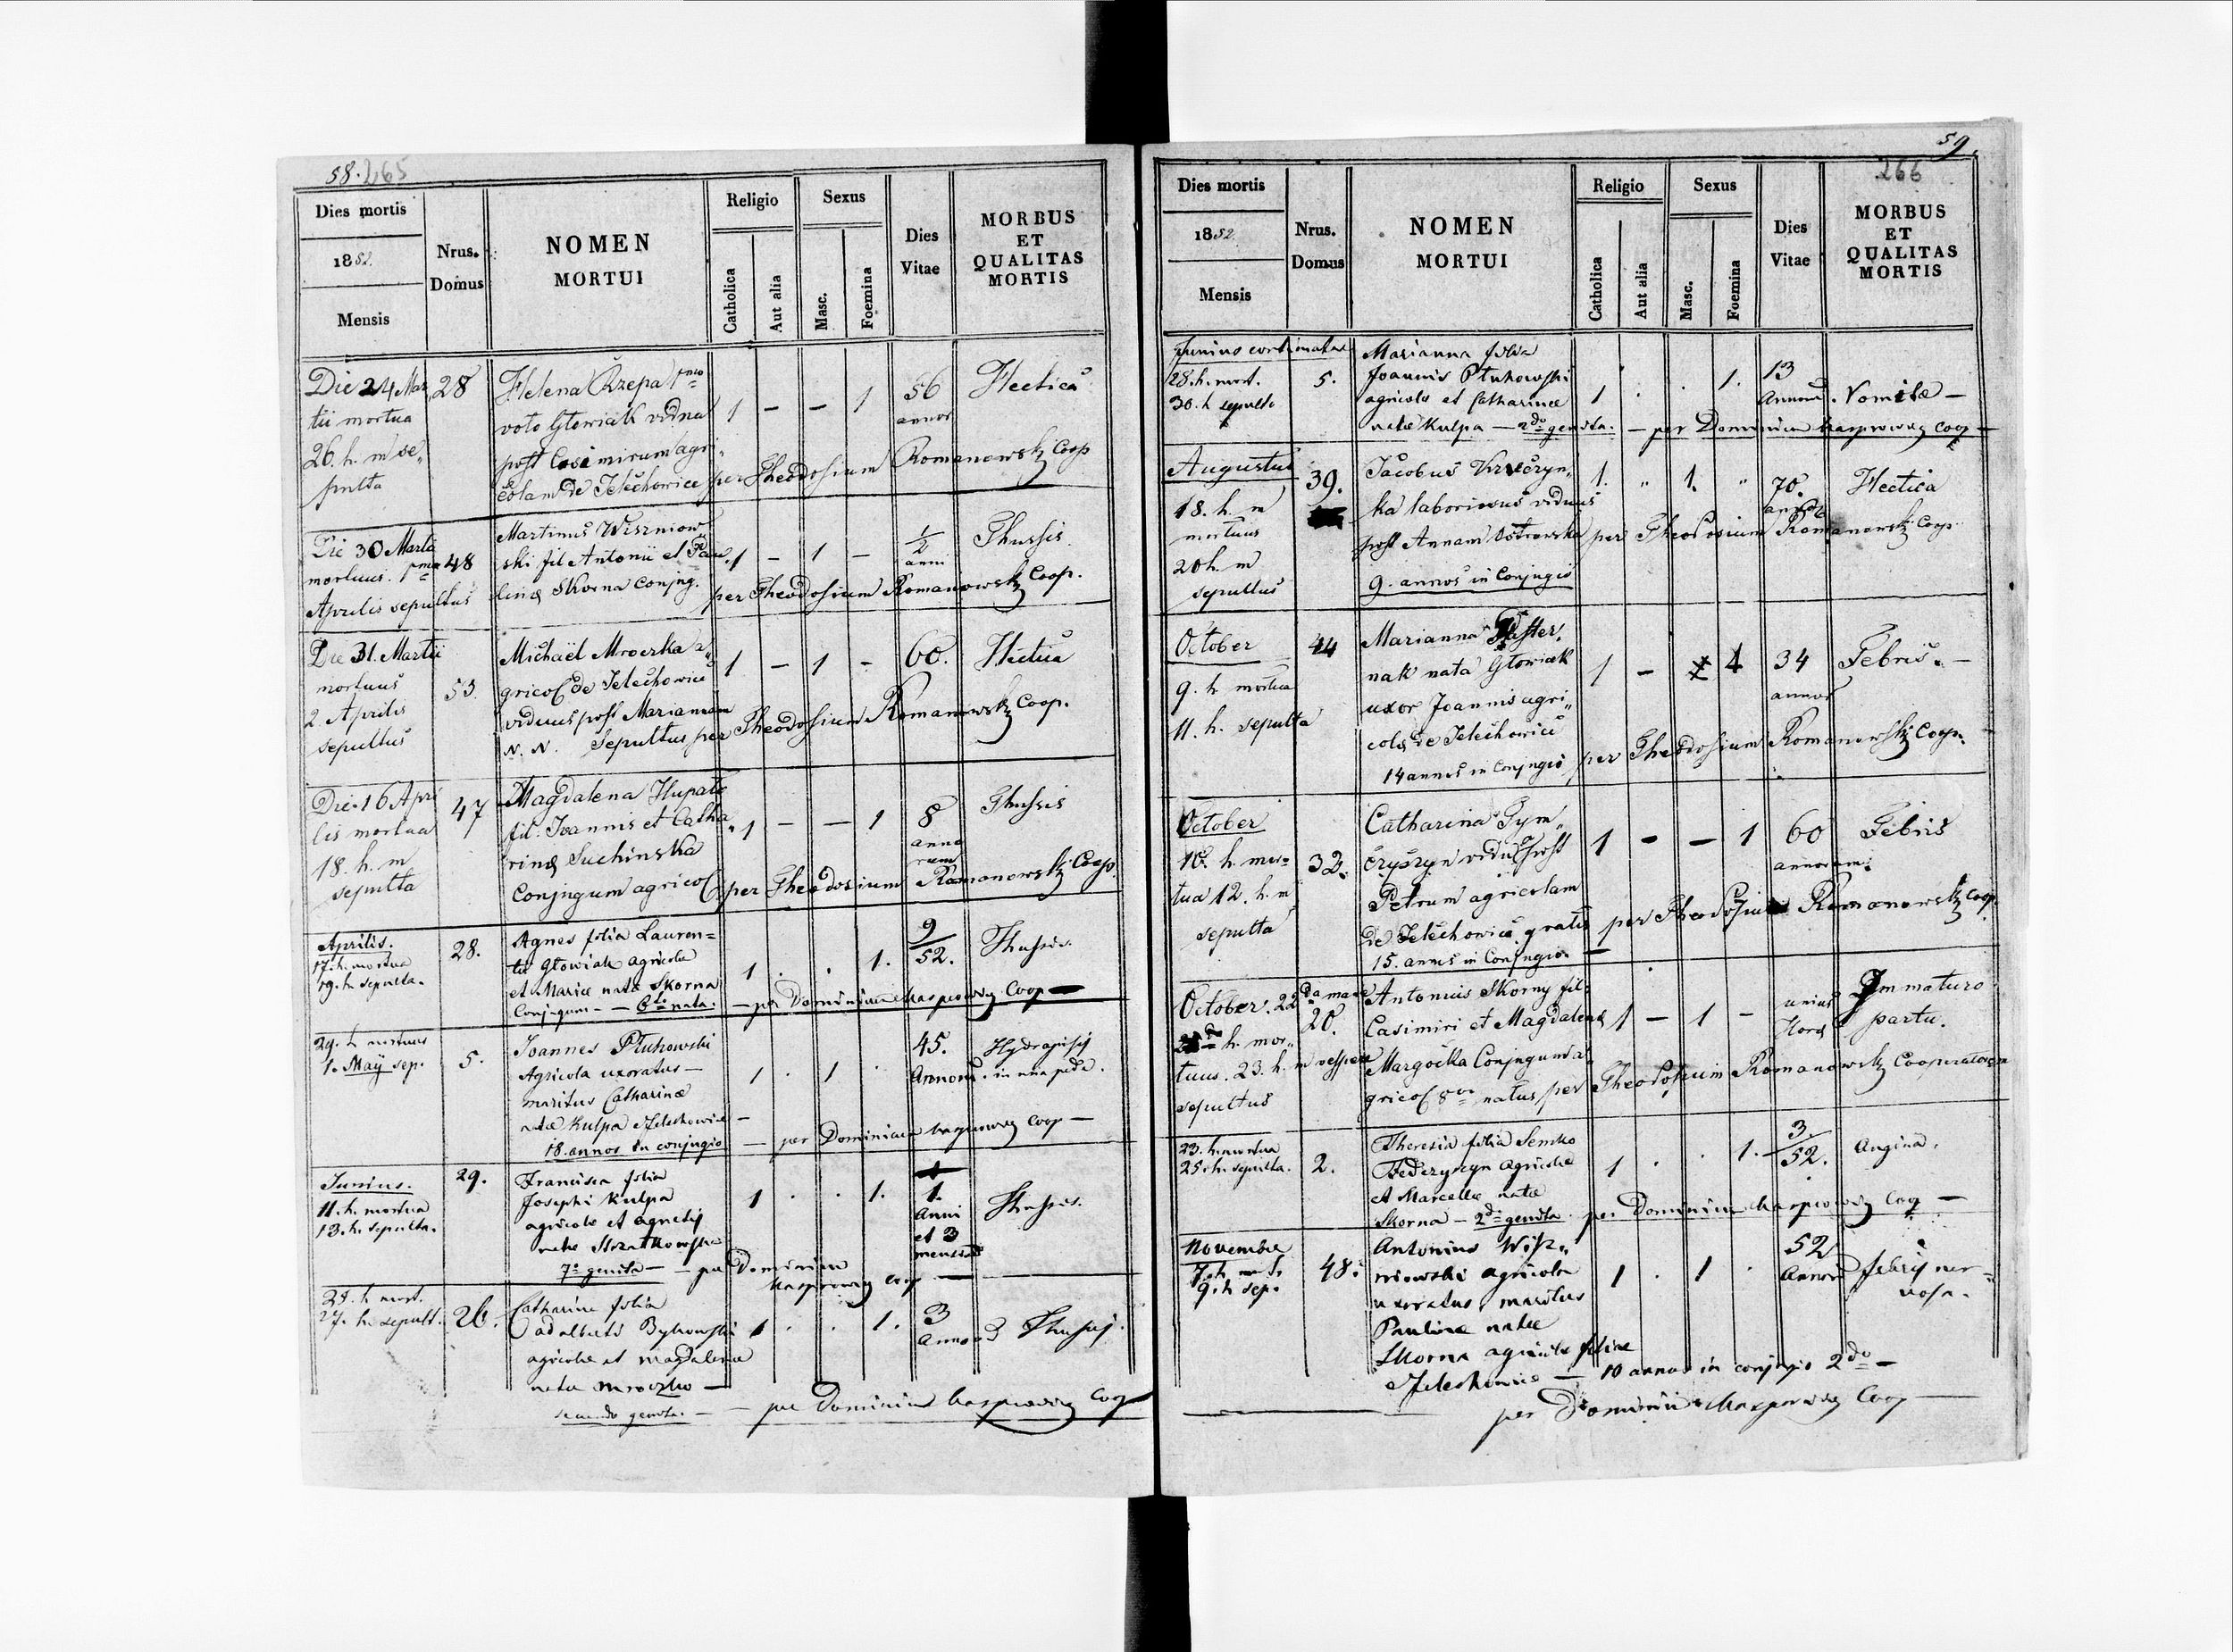 58. 265
Dies mortis
1852.
Mensis
Nrus.
Domus
NOMEN
MORTUI
Religio
Catholica
Aut alia
Sexus
Masc.
Foemina
Dies
Vitae
MORBUS
ET
QUALITAS
MORTIS
Die 24 Mar
tii mortua
26. h. m se„
pulta
28
Helena Rzepa 1mo
voto Głowiak vidua
post Casimirum agri„
colam de Telechowice per Theodosium Romanowski Coop
1 — — 1
56
annor
Hectica
Die 30 Martii
mortuus. 1ma
Aprilis sepultus
48
Martinus Wiszniow
ski fil Antonii et Pau„
linæ Skorna Conjug. per Theodosium Romanowski Coop.
1 — 1 —
1/2
anni
Thussis.
Die 31. Martii
mortuus
2. Aprilis
sepultus
53.
Michaël Mroczka a„
gricol de Telechowice
viduus post Mariannam
N. N. Sepultus per Theodosium Romanowski Coop.
1 — 1 —
60.
Hectica
Die 16 Apri
lis mortua
18. h. m
sepulta
47
Magdalena Hupało
fil. Joannis et Catha„
rinæ Suchinska
Conjugum agricol per Theodosium Romanowski Coop
1 — — 1
8
anno
rum
Thussis
Aprilis.
17. h. mortua
19. h. sepulta.
28.
Agnes filia Lauren=
tii Głowiak agricolæ
et Mariæ natæ Skorna
Conjugum — 6to nata. — per Dominium Kasprowicz Coop —
1 . . 1.
9/52.
Thussis.
29. h mortuus
1. Maÿ sep.
5.
Joannes Ptuhowski
Agricola uxoratus —
maritus Catharinæ
natæ Kulpa
18. annos in conjugio — per Dominium Kasprowicz Coop —
1 . 1 .
45.
Annor.
Hydropisij
in una pede.
Junius.
11. h. mortua
13. h. sepulta.
29.
Francisca filia
Josephi Kulpa
agricolæ et Agnetis
natæ
7= genita — — per Dominium
Kasprowicz Coop —
1 . . 1.
1.
Anni
et 3
mensium
Thussis.
25. h mort.
27. h. sepult.
26.
Catharina filia
Adalberti Bykowski
agricolæ et Magdalenæ
natæ Mroczko —
secundo genita. — — per Dominium Kasprowicz Coop
1 . . 1.
3
Annor
Thussis.
59.
266
Dies mortis
1852.
Mensis
Nrus.
Domus
NOMEN
MORTUI
Religio
Catholica
Aut alia
Sexus
Masc.
Foemina
Dies
Vitae
MORBUS
ET
QUALITAS
MORTIS
Junius continuatur
28. h. mort.
30. h sepulta
5.
Marianna filia
Joannis Ptuhowski
agricolæ et Catharinæ
natæ Kulpa — 2do genita. — per Dominium Kasprowicz Coop —
1 . . 1.
13
Annor.
Vomitæ —
Augustus
18. h. m
mortuus
20 h. m
sepultus
39.
Jacobus
ka laboriosus viduus
post Annam Ostrowska per Theodosium Romanowski Coop.
9. annos in Conjugio
1. „ 1. „
70.
annor
Hectica
October
9. h mortua
11. h. sepulta
44
Marianna Paster„
nak nata Głowiak
uxor Joannis agri„
colæ de Telechowice
14 annos in Conjugio per Theodosium Romanowski Coop.
1 — 1
34
annor
Febris. —
October
10. h. mor=
tua 12. h. m
sepulta
32.
Catharina Tym„
czyszyn vidu post
Petrum agricolam
de Telechowice gratis per Theodosium Romanowski Coop.
15. annis in Conjugio. —
1 — — 1
60
annorum.
Febris
October. 22da mane
h. mor„
tuus. 23. h. m vespere
sepultus
20.
Antonius Skorny fil:
Casimiri et Magdalenæ
Margoćka Conjugum a„
gricol 8vo natus per Theodosium Romanowski Cooperatorem
1 — 1 —
unius
Horæ
Immaturo
partu.
23. h. mortua
25. h. sepulta.
2.
Theresia filia Semko
Fedczyszyn agricolæ
et Marcellæ natæ
Skorna — 2do genita per Dominium Kasprowicz Coop —
1 . . 1.
3/52.
Angina.
Novembre
7. h
9. h sep.
48.
Antonius Wisz„
niowski agricola
uxoratus, maritus
Paulinæ natæ
Skorna agricolæ filiæ
— 10 annos in conjugio 2do —
per Dominium Kasprowicz Coop —
1 . 1 .
52
Annor
febris ner=
vosa.